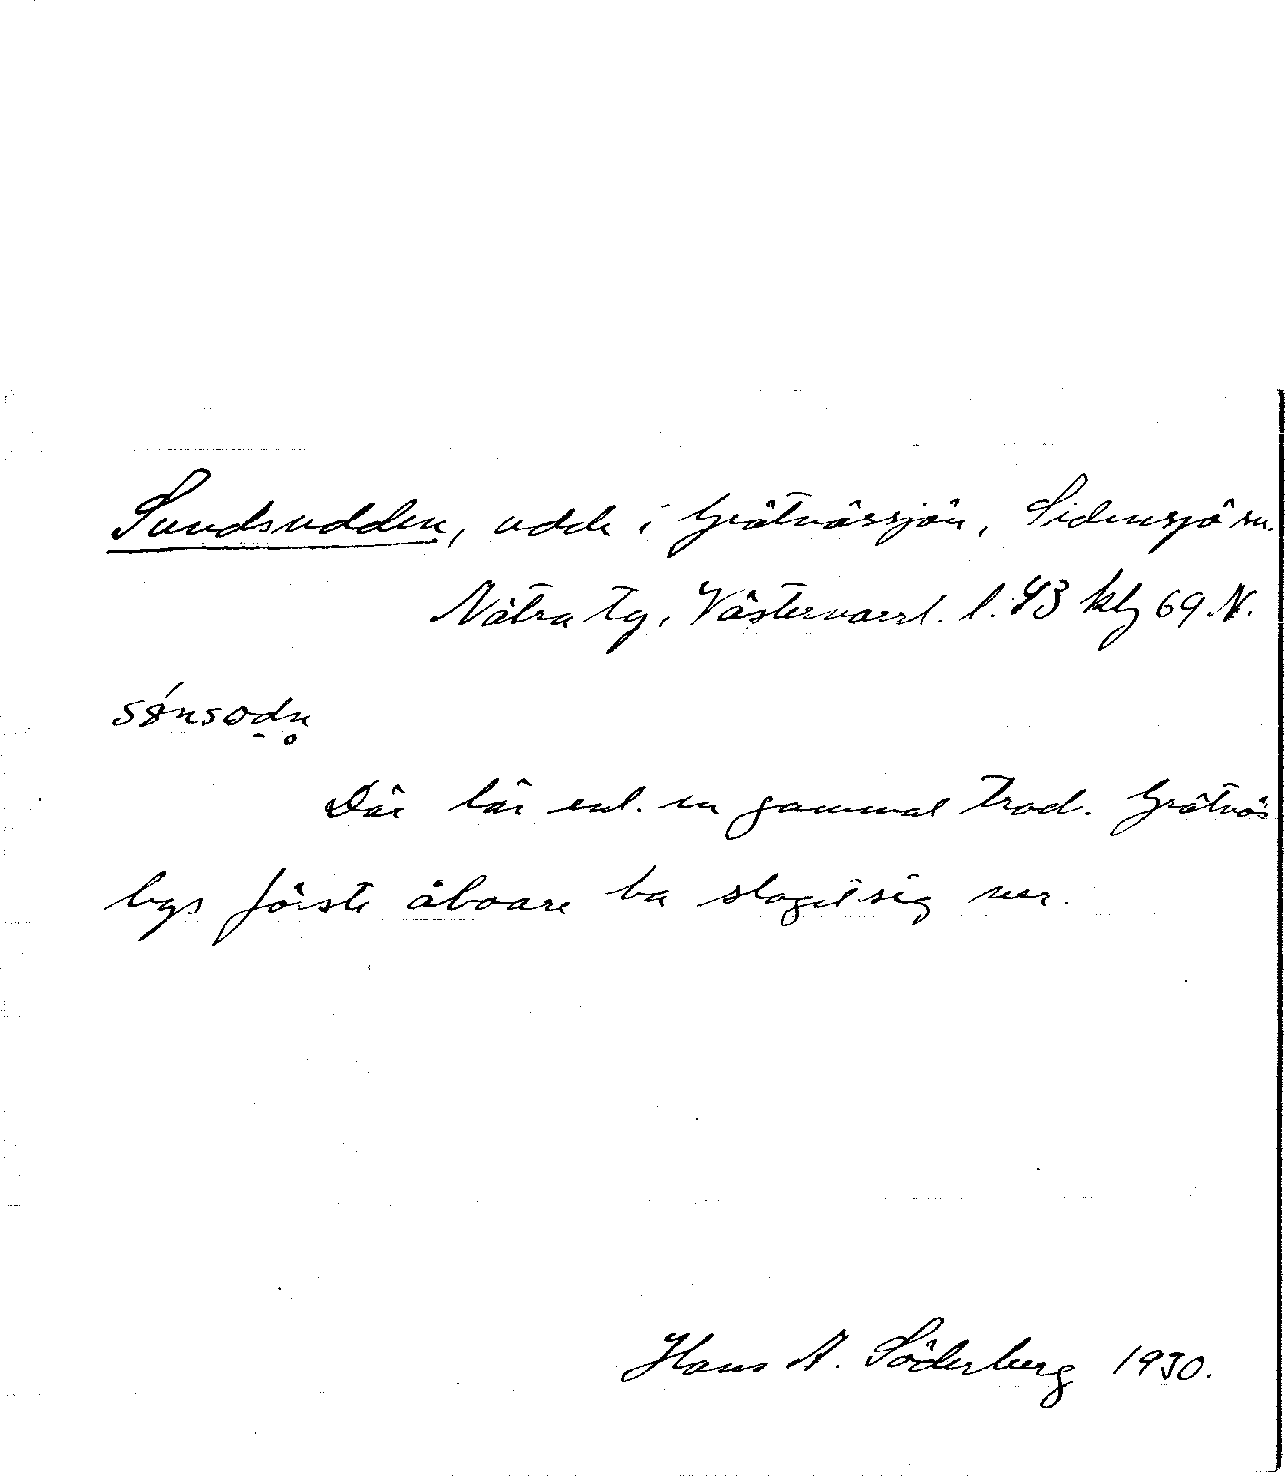 Sundsudden, udde i Grötnässjön, Sidensjö sn.
Nätra tg, Västernorrl. l. 43 klg 69 N.
sønsodn̥
Där lär enl. en gammal trad. Grötnäs
bys förste åboare ha slagit sig ner.
Hans A. Söderberg 1930.